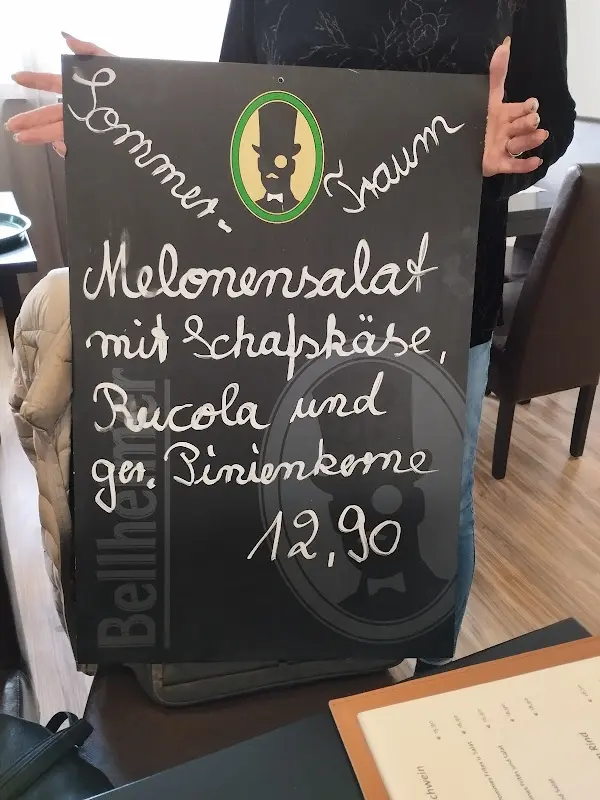 Sommer-
Traum
Melonensalat
mit Schafskäse,
Rucola und
ger. Pinienkerne
12,90
Bellheimer
Rind
Schwein